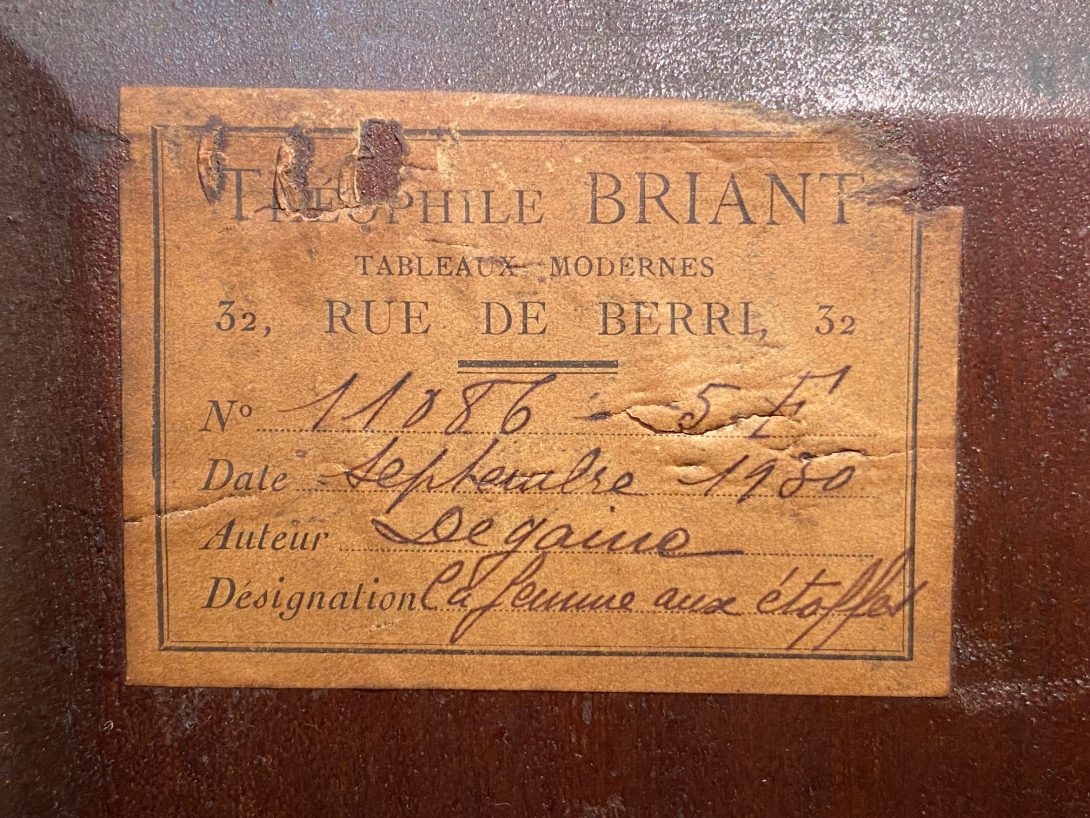 THÉOPHILE BRIANT
TABLEAUX MODERNES
32, RUE DE BERRI, 32
N° 11086 - 5 F
Date Septembre - 1930
Auteur Degaine
Désignation La femme aux étoffes